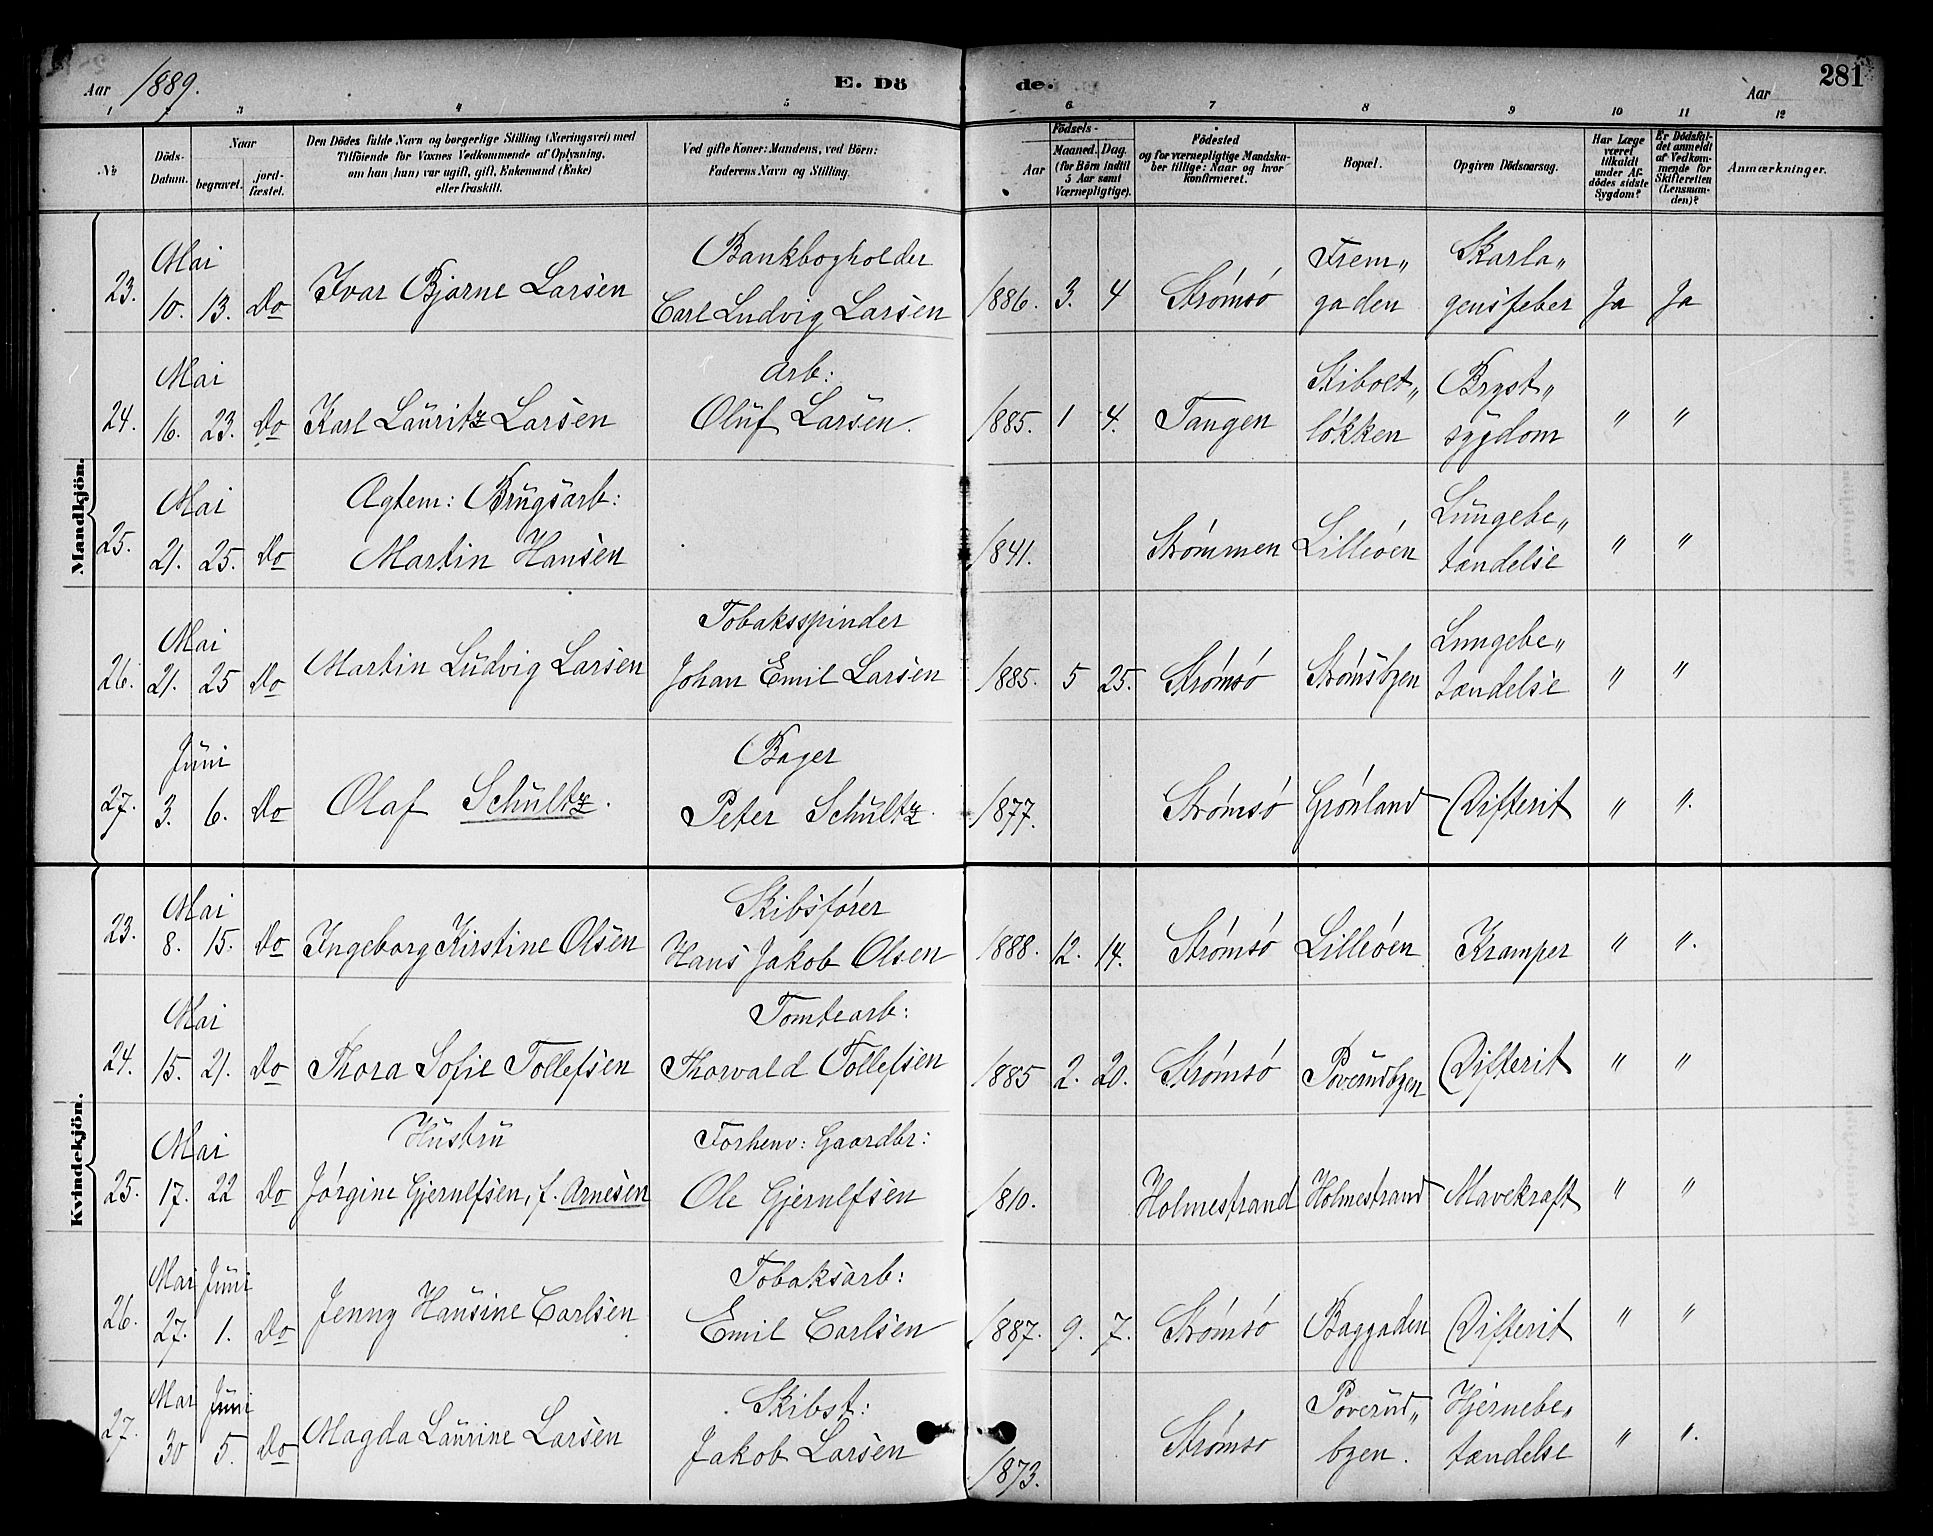 Aar 1889. E. Dö de. Aar 281
1 2 3 4 5 6 7 8 9 10 11 12
№ Döds-Datum. Naar begravet. jord-fæstet. Den Dödes fulde Navn og borgerlige Stilling (Næringsvei) med Tilföiende for Voxnes Vedkommende af Oplysning, om han (hun) var ugift, gift, Enkemand (Enke) eller fraskilt. Ved gifte Koner: Mandens, ved Börn: Faderens Navn og Stilling. Födsels- Aar Maaned. Dag. (for Börn indtil 5 Aar samt Værnepligtige). Födested og for værnepligtige Mandskaber tillige: Naar og hvor konfirmeret. Bopæl. Opgiven Dödsaarsag. Har Læge været tilkaldt under Afdödes sidste Sygdom? Er Dödsfaldet anmeldt af Vedkommende for Skifteretten (Lensmanden)? Anmærkninger.
Mandkjön.
Mai Bankbogholder Frem„ Skarla„
23. 10. 13. Do Ivar Bjarne Larsen Carl Ludvig Larsen 1886. 3. 4 Strømsø gaden gensfeber Ja Ja
Mai Arb: Skibolt„ Bryst„
24. 16. 23. Do Karl Lauritz Larsen Oluf Larsen. 1885. 1 4. Tangen løkken sygdom " "
Mai Ægtem: Brugsarb: Lungebe„
25. 21. 25. Do Martin Hansen 1841. Strømmen Lilleøen tændelse " "
Mai Tobaksspinder Lungebe„
26. 21. 25 Do Martin Ludvig Larsen Johan Emil Larsen 1885. 5 25. Strømsø Strømsbgen tændelse " "
Juni Bager
27. 3. 6. Do Olaf Schultz. Peter Schultz. 1877. Strømsø Grønland Difterit " ".
Kvindekjön.
Mai Skibsfører
23. 8. 15. Do Ingeborg Kirstine Olsen Hans Jakob Olsen 1888. 12. 14. Strømsø Lilleøen Kramper " ".
Mai Tomtearb:
24. 15. 21. Do Thora Sofie Tollefsen Thorvald Tollefsen 1885 2. 20. Strømsø Poverudbgen Difterit " "
Mai Hustru Forhenv: Gaardbr:
25. 17. 22 Do Jørgine Gjerulfsen, f. Arnesen Ole Gjerulfsen 1810. Holmestrand Holmestrand Mavekræft " "
Mai Juni Tobaksarb:
26. 27. 1. Do Jenny Hansine Carlsen Emil Carlsen 1887. 9. 7. Strømsø Baggaden Difterit " "
Mai Juni Skibst: Poverud„ Hjernebe„
27. 30 5. Do Magda Laurine Larsen Jakob Larsen 1873. Strømsø bgen. tændelse " ".